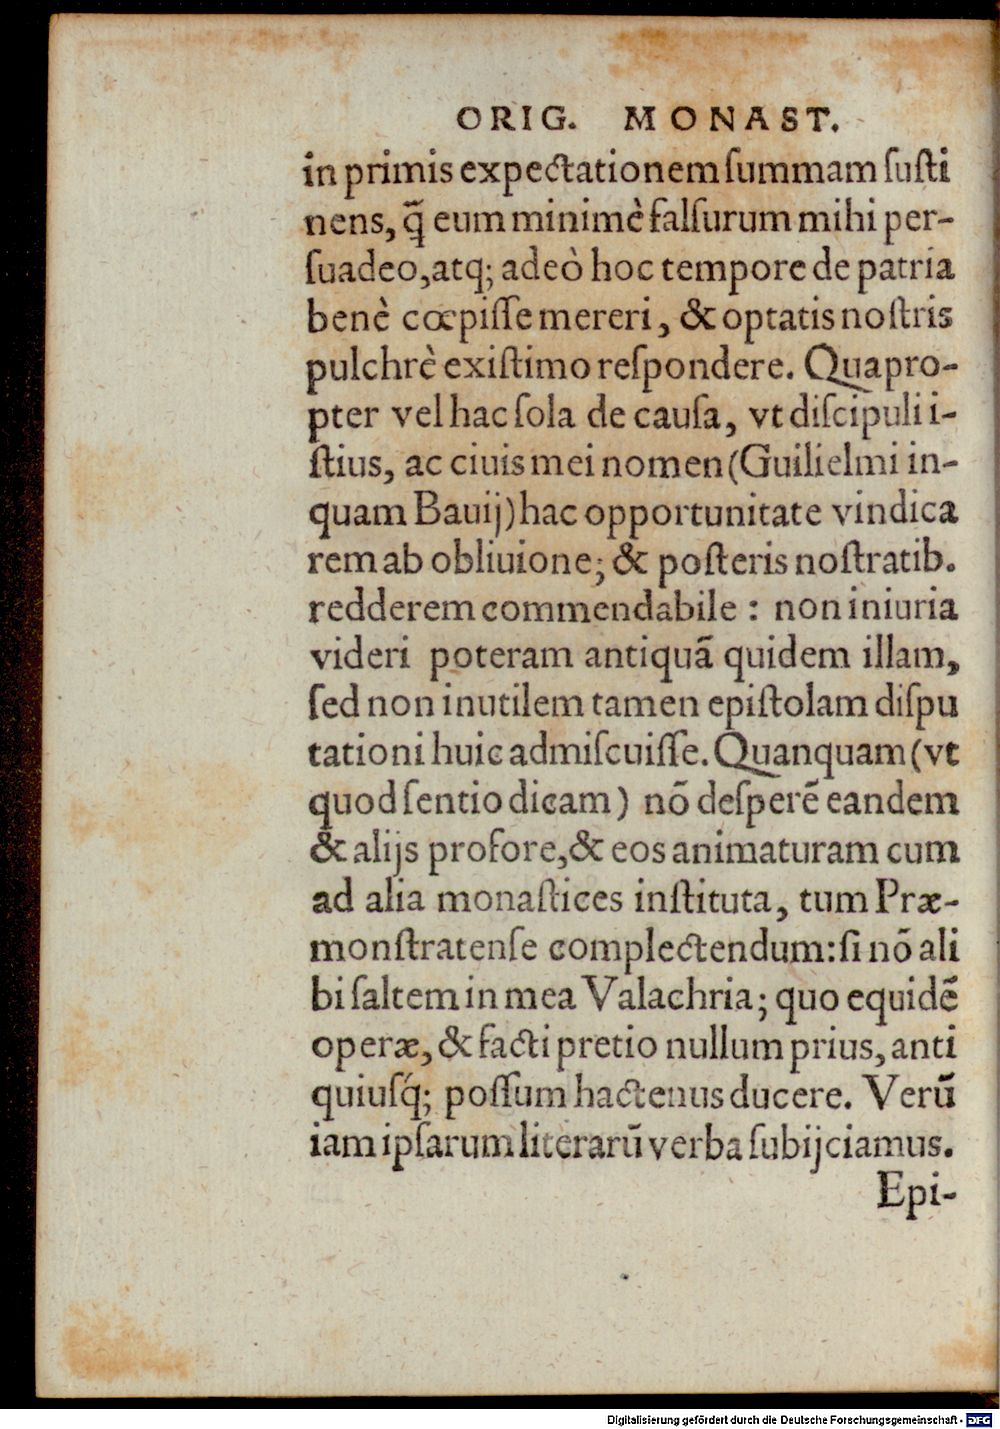 ORIG. MONAST.
in primis expectationem ſummam ſuſti
nens, q̃ eum minimè falſurum mihi per-
ſuadeo,atq; adeò hoc tempore de patria
benè cœpiſſe mereri, & optatis noſtris
pulchrè exiſtimo reſpondere. Quapro-
pter vel hac ſola de cauſa, vt diſcipuli i-
ſtius, ac ciuis mei nomen (Guilielmi in-
quam Bauij) hac opportunitate vindica
rem ab obliuione; & poſteris noſtratib.
redderem commendabile : non iniuria
videri poteram antiquã quidem illam,
ſed non inutilem tamen epiſtolam diſpu
tationi huic admiſcuiſſe. Quanquam (vt
quod ſentio dicam) nõ deſperẽ eandem
& alijs profore,& eos animaturam cum
ad alia monaſtices inſtituta, tum Præ-
monſtratenſe complectendum: ſi nõ ali
bi ſaltem in mea Valachria; quo equidẽ
operæ, & facti pretio nullum prius, anti
quiuſq́; poſſum hactenus ducere. Verũ
iam ipſarum literarũ verba ſubijciamus.
Epi-
Digitalisierung gefördert durch die Deutsche Forschungsgemeinschaft - DFG